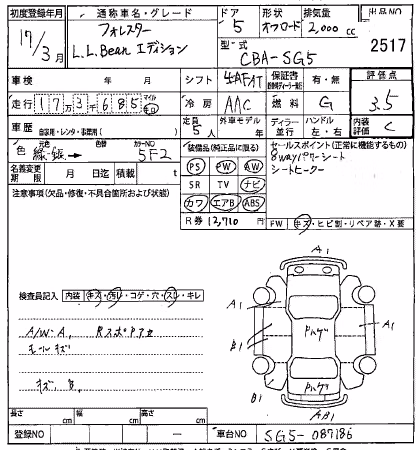 初度登録年月 通称車名・グレード ドア 形状 排気量 出品NO
17/3月 フォレスター 5 オフロード 2,000cc
L.L.Bean エディション 型式 CBA-SG5 2517
車検 年 月 シフト 4AFAT 保証書 有・無 評価点
走行 173685 マイル キロ 冷房 AAC 燃料 G 3.5
車歴 自家用・レンタ・事業用( ) 定員 5人 外車モデル 年 ディーラー 並行 ハンドル 左・右 内装評価 C
色 元色 緑・銀 色替 カラーNO 5F2 装備品(純正品に限る) セールスポイント(正常に機能するもの)
PS PW AW 8wayパワーシート
名義変更期限 月 日迄 積載 t SR TV ナビ シートヒーター
注意事項(欠品・修復・不具合箇所および状態) カワ エアB ABS
R券 12,710 FW キズ・ヒビ割・リペア跡・X要
A1
検査員記入 内装 キズ・汚レ・コゲ・穴・スレ・キレ
A1 A1
A/W・A、
キズ
B1 ハゲ
B1 ハゲ
AB1
長さ cm 幅 cm 高さ cm
登録NO 車台NO SG5-087186